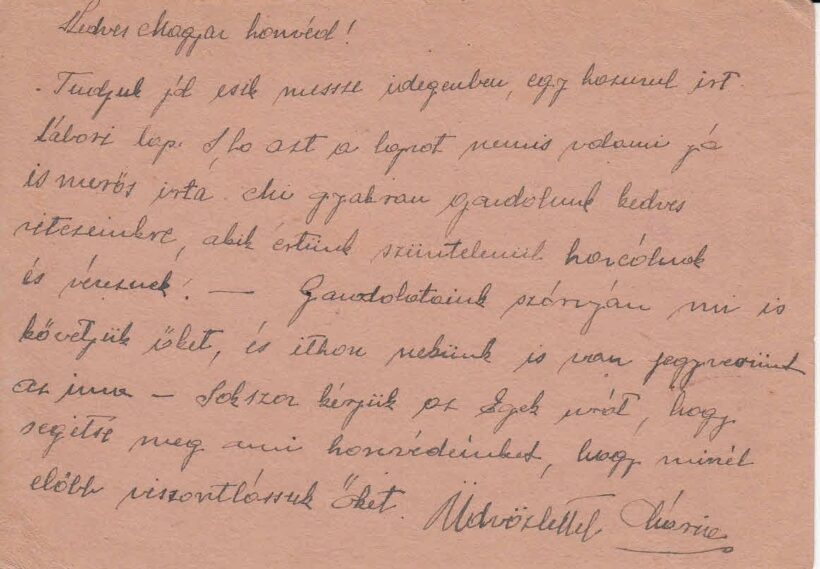 Kedves Magyar honvéd!
Tudjuk jól esik messze idegenben, egy hazunul irt
tábori lap. S ha azt a lapot nemis valami jó
is merős irta. Mi gyakran gondolunk kedves
vitezeinkre, akik értünk szüntelenül harcólnak
és véreznek! — Gondolataink szárnyán mi is
követjük őket, és ithon nekünk is van fegyverünk
az ima — Sokszor kérjük az Egek urát, hogy
segitse meg ami honvédeinket, hogy minél
előbb viszontlássuk Őket. Üdvözlettel Márie